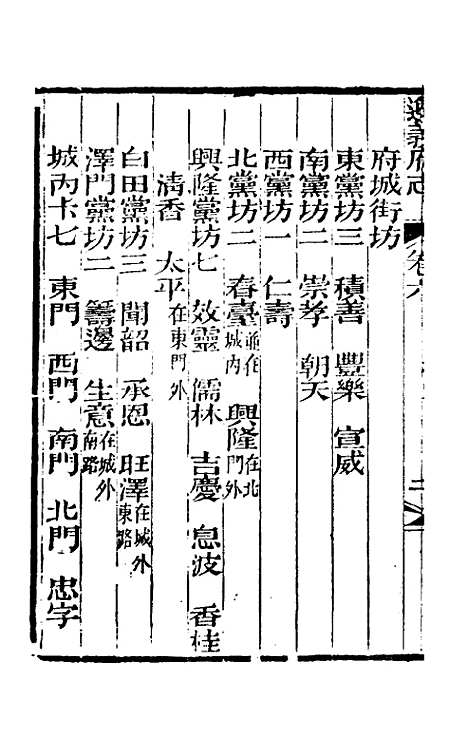 遵義府志 卷六 二
府城街坊
東黨坊三 積善 豐樂 宣威
南黨坊二 崇孝 朝天
西黨坊一 仁壽
北黨坊二 春臺並在城内 興隆在北門外
興隆黨坊七 效靈 儒林 吉慶 息波 香桂
清香 太平在東門外
白田黨坊三 聞韶 承恩 旺澤在城外東路
澤門黨坊二 籌邊 生意在城外南路
城内卡七 東門 西門 南門 北門 忠字